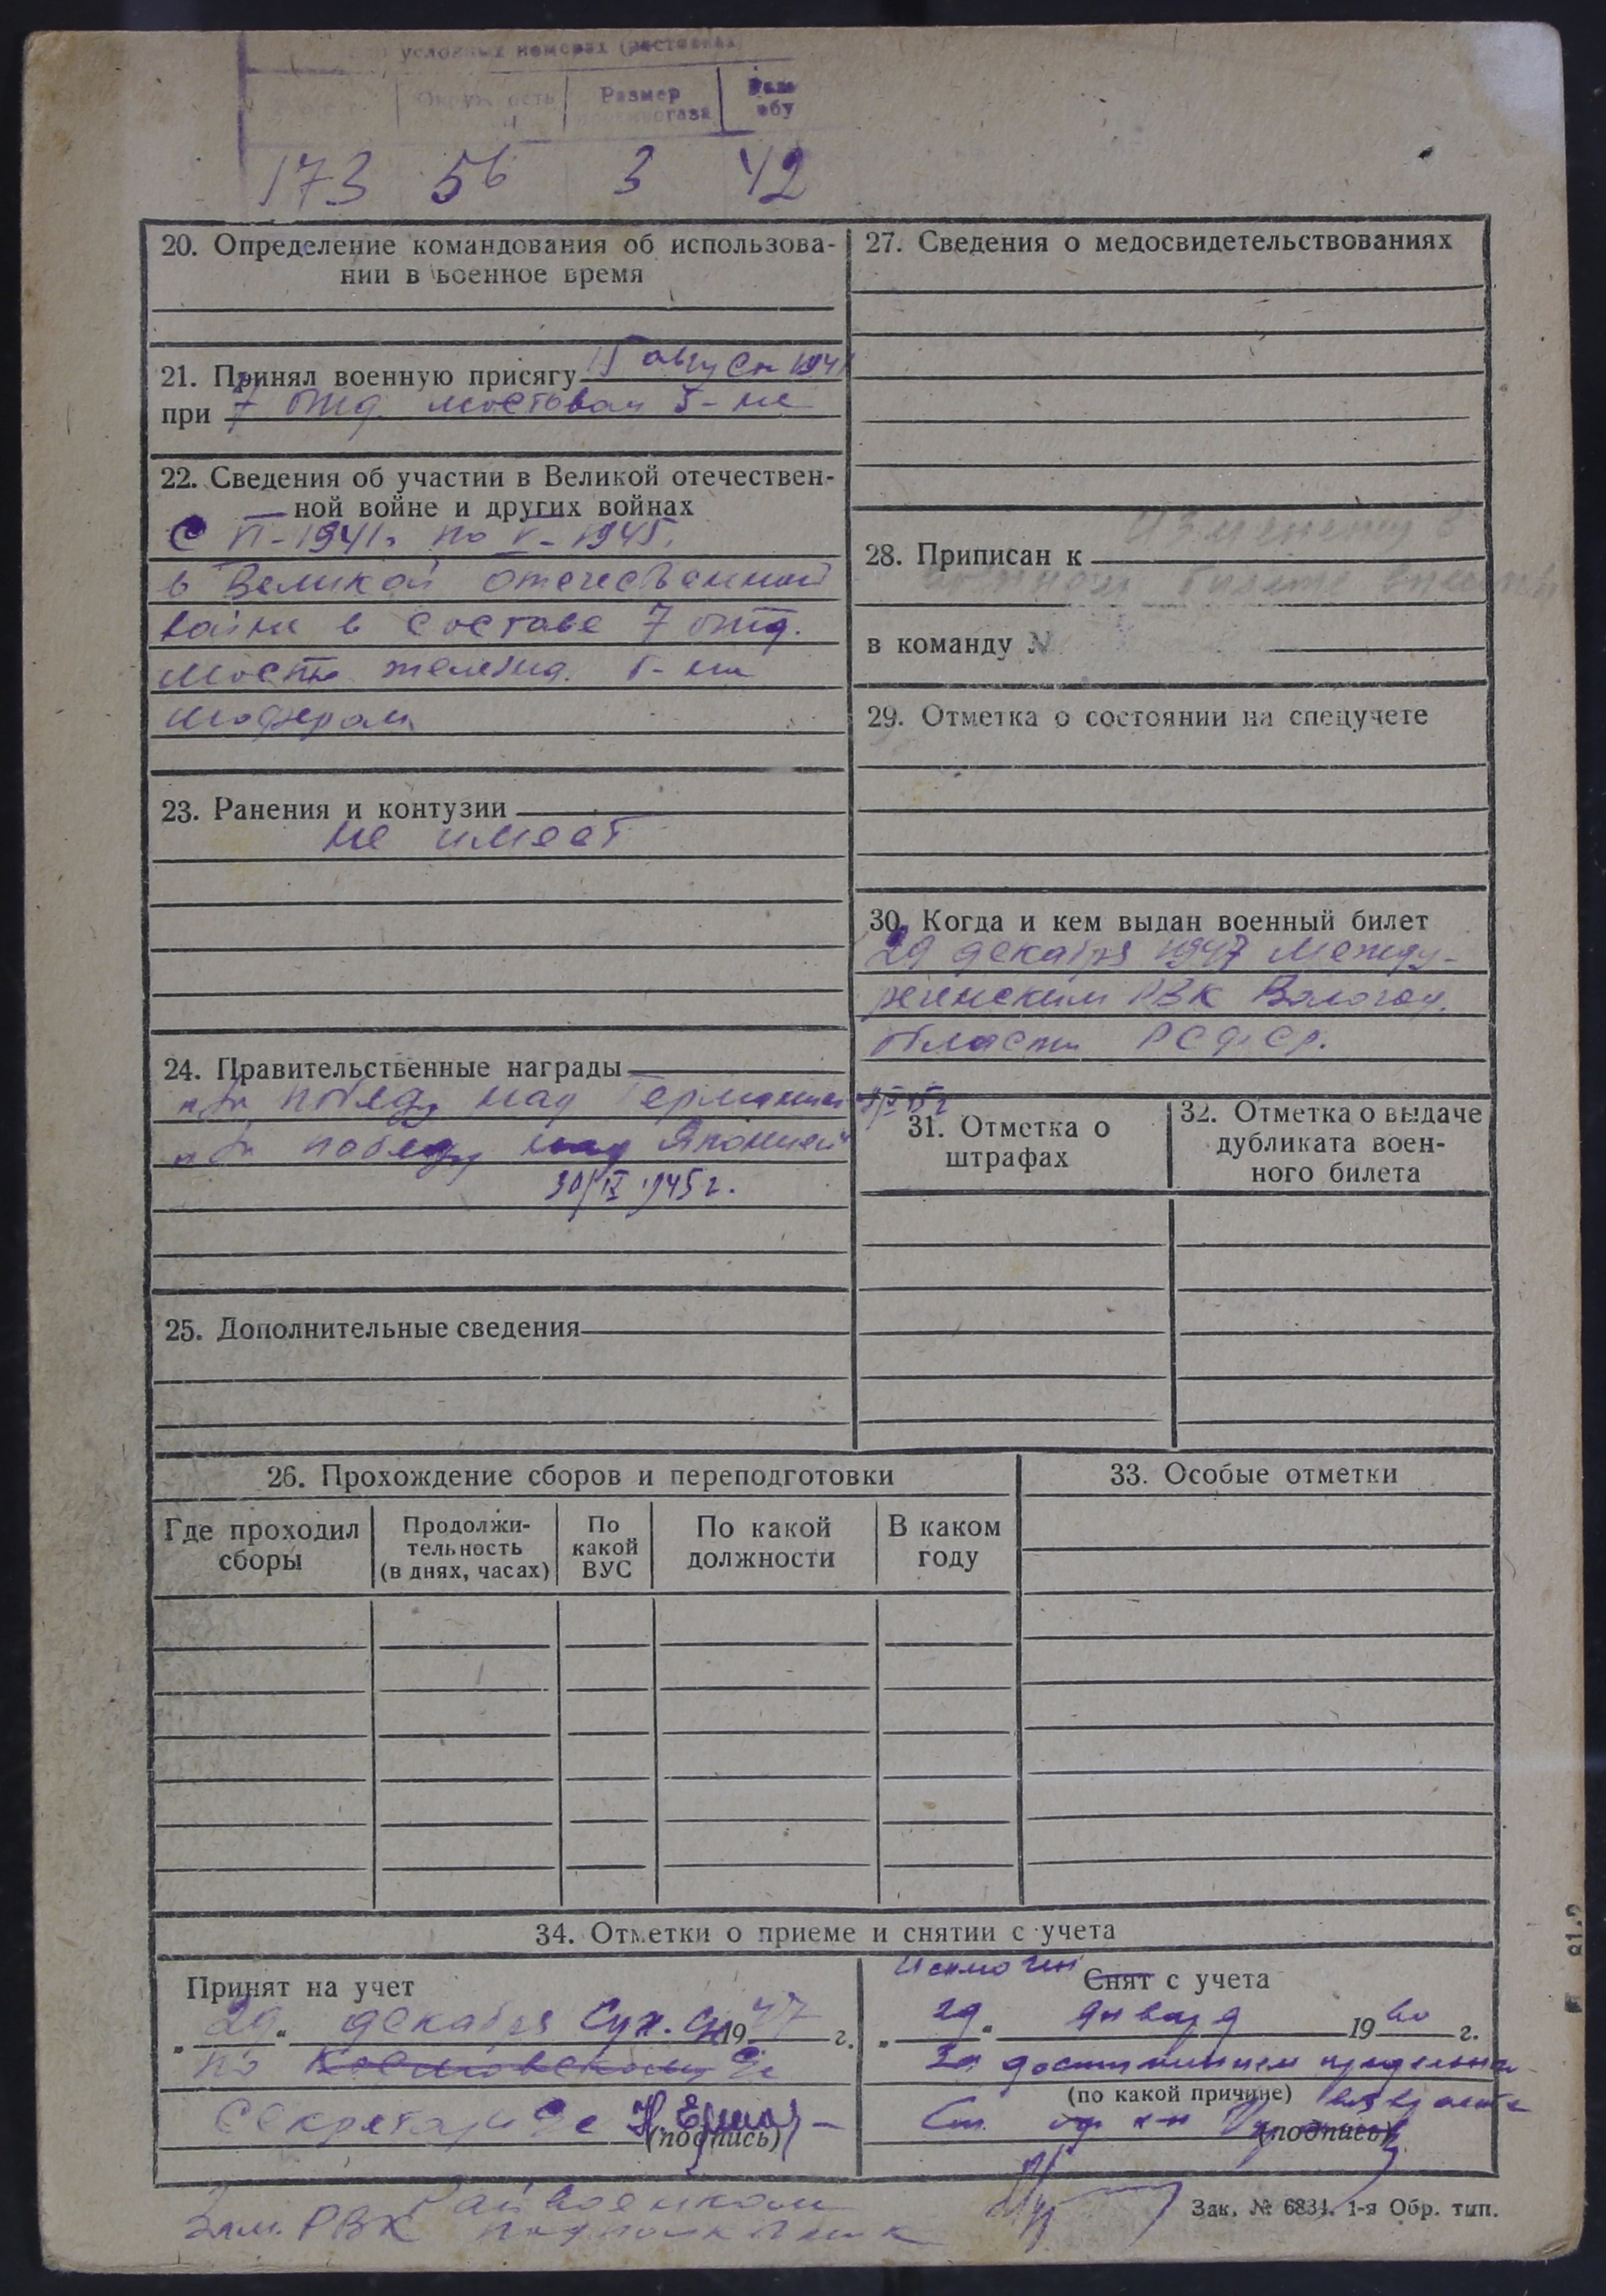 условных номерах
Размер
173 56 3 42
20. Определение командования об использова-
нии в военное время
21. Принял военную присягу 15 август 1941
при 7 отд. мостовом б-не
22. Сведения об участии в Великой отечествен-
ной войне и других войнах
С VI-1941г. по V-1945.
в Великой отечественной
войне в составе 7 отд.
мостов. железнд. б-на
шофером
23. Ранения и контузии
не имеет
24. Правительственные награды
"За победу над Германией
"За победу над Японией"
30/IX 1945 г.
25. Дополнительные сведения
27. Сведения о медосвидетельствованиях
28. Приписан к
в команду №
29. Отметка о состоянии на спецучете
30. Когда и кем выдан военный билет
29 декабря 1947 Между-
реченским РВК Вологод.
области РСФСР.
31. Отметка о
штрафах
32. Отметка о выдаче
дубликата воен-
ного билета
26. Прохождение сборов и переподготовки
Где проходил
сборы
Продолжи-
тельность
(в днях, часах)
По
какой
ВУС
По какой
должности
В каком
году
33. Особые отметки
34. Отметки о приеме и снятии с учета
Принят на учет
"29" декабря 1947 г.
по
Секретарь с/с
(подпись)
Исключен Снят с учета
"29" января 1960 г.
За достижением предельн.
(по какой причине) возраста
Ст.
(подпись)
Райвоенком
Зам. РВК подполковник
Зак. № 6834. 1-я Обр. тип.